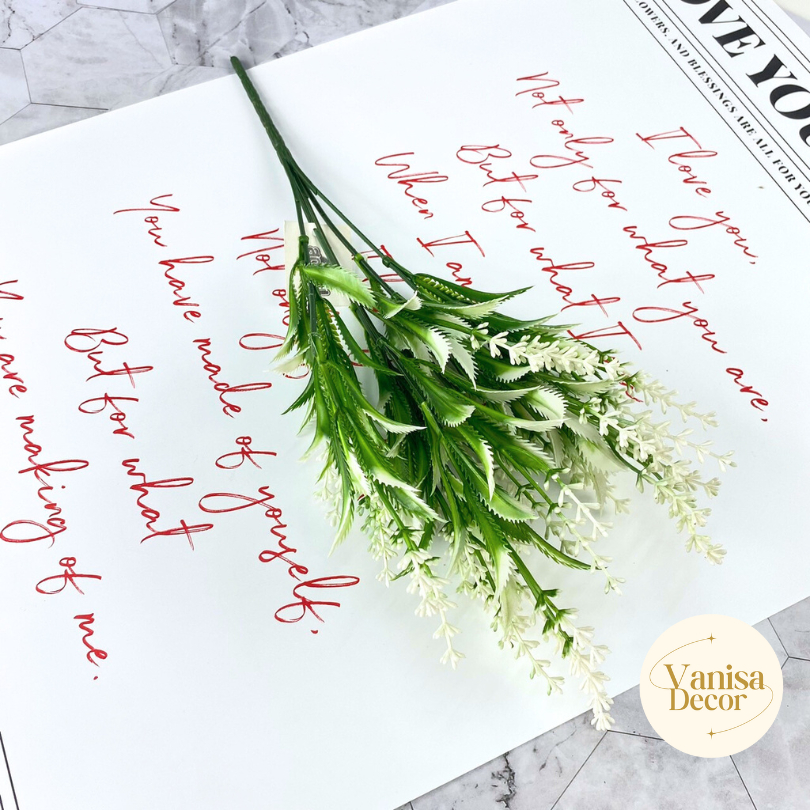 OVE YOU
LOWERS, AND BLESSINGS ARE ALL FOR YOU
I love you,
Not only for what you are,
But for what I
When I am
Not only
You have made of yourself,
But for what
You are making of me.
Vanisa
Decor